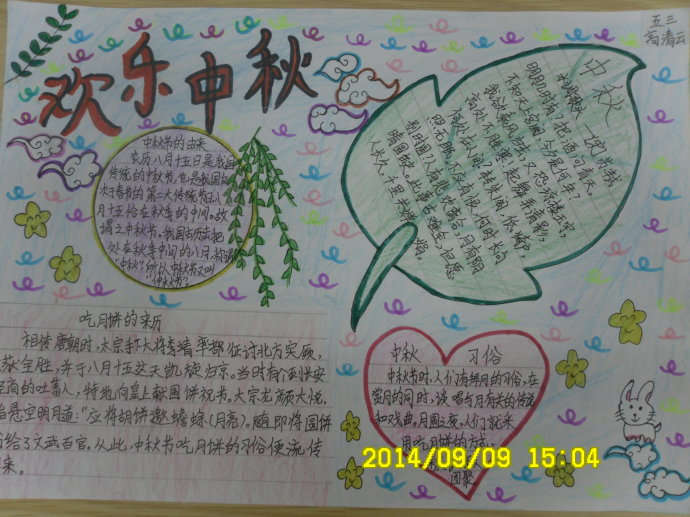 五三
高清云
欢乐中秋
中秋节的由来
农历八月十五日是我国
传统的中秋节,也是我国仅
次于春节的第二大传统节日。八
月十五恰在秋季的中间。故
谓之中秋节。我国古历法把
处在秋季中间的八月,称谓
"中秋",所以中秋节又叫
"仲秋节"。
中秋
明月几时有?把酒问青天。
不知天上宫阙,今夕是何年?
我欲乘风归去,又恐琼楼玉宇,
高处不胜寒,起舞弄清影,
何似在人间,转朱阁,低绮户,
照无眠,不应有恨,何时长向
别时圆?人有悲欢离合,月有阴
晴圆缺。此事古难全,但愿
人长久,千里共婵娟。
吃月饼的来历
相传唐朝时,太宗打大将李靖率部征讨北方突厥,
获全胜,并于八月十五这天凯旋归京。当时有个到长安
经商的吐蕃人,特地向皇上献圆饼祝书。太宗龙颜大悦,
指悬空明月道:"应将胡饼邀蟾蜍(月亮)。随即将圆饼
给了文武百官。从此,中秋节吃月饼的习俗便流传
来。
中秋 习俗
中秋节时,人们有拜月的习俗,在
赏月的同时,
和戏曲。月圆之夜,人们就来
用吃月饼的方式,
团聚
2014/09/09 15:04